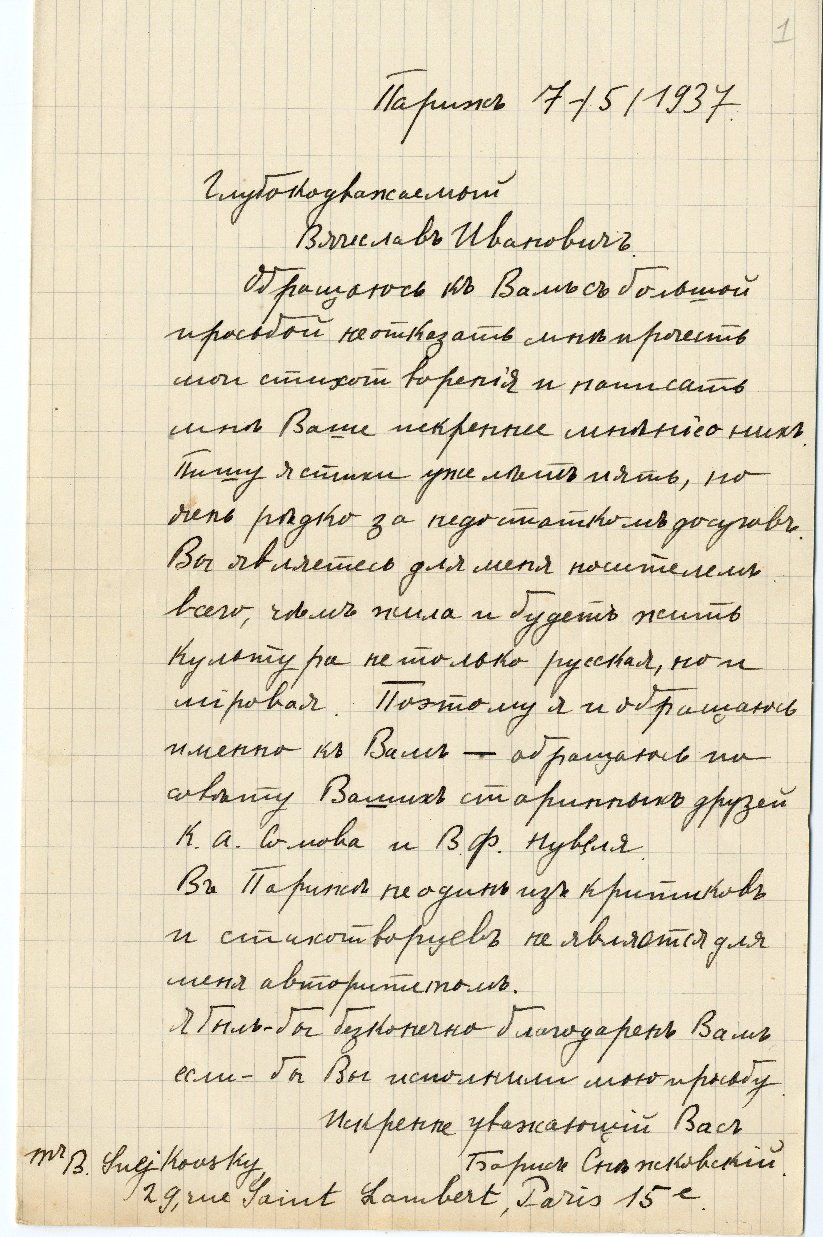 1
Парижъ 7/5/1937.
Глубокоуважаемый
Вячеславъ Ивановичъ.
Обращаюсь къ Вамъ съ большой
просьбой не отказать мнѣ прочесть
мои стихотворенія и написать
мнѣ Ваше искреннее мнѣніе о нихъ.
Пишу я стихи уже лѣтъ пять, но
очень рѣдко за недостаткомъ досуговъ.
Вы являетесь для меня носителемъ
всего, чѣмъ жила и будетъ жить
культура не только русская, но и
міровая. Поэтому я и обращаюсь
именно къ Вамъ — обращаюсь по
совѣту Вашихъ старинныхъ друзей
К. А. Сомова и В. Ф. Нувеля.
Въ Парижѣ не одинъ изъ критиковъ
и стихотворцевъ не является для
меня авторитетомъ.
Я былъ-бы безконечно благодаренъ Вамъ
если-бы Вы исполнили мою просьбу.
Искренне уважающій Васъ
Борисъ Снѣжковскій.
mr B. Snejkovsky
29, rue Saint Lambert, Paris 15e.